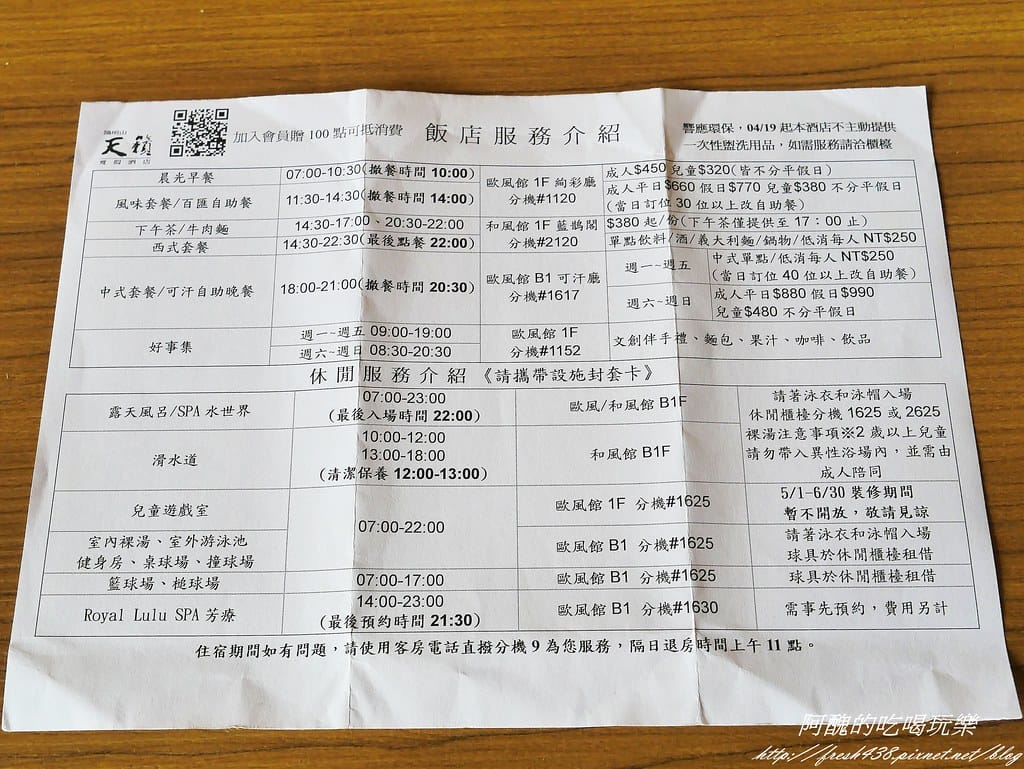 陽明山
天籟
渡假酒店
加入會員贈 100 點可抵消費
飯店服務介紹
響應環保，04/19 起本酒店不主動提供
一次性盥洗用品，如需服務請洽櫃檯
晨光早餐
07:00-10:30(撤餐時間 10:00)
歐風館 1F 絢彩廳
分機#1120
成人$450 兒童$320(皆不分平假日)
風味套餐/百匯自助餐
11:30-14:30(撤餐時間 14:00)
成人平日$660 假日$770 兒童$380 不分平假日
(當日訂位 30 位以上改自助餐)
下午茶/牛肉麵
14:30-17:00、20:30-22:00
和風館 1F 藍鵲閣
分機#2120
$380 起/份(下午茶僅提供至 17：00 止)
西式套餐
14:30-22:30(最後點餐 22:00)
單點飲料/酒/義大利麵/鍋物/低消每人 NT$250
中式套餐/可汗自助晚餐
18:00-21:00(撤餐時間 20:30)
歐風館 B1 可汗廳
分機#1617
週一~週五
中式單點/低消每人 NT$250
(當日訂位 40 位以上改自助餐)
週六~週日
成人平日$880 假日$990
兒童$480 不分平假日
好事集
週一~週五 09:00-19:00
週六~週日 08:30-20:30
歐風館 1F
分機#1152
文創伴手禮、麵包、果汁、咖啡、飲品
休閒服務介紹《請攜帶設施封套卡》
露天風呂/SPA 水世界
07:00-23:00
(最後入場時間 22:00)
歐風/和風館 B1F
請著泳衣和泳帽入場
休閒櫃檯分機 1625 或 2625
裸湯注意事項※2 歲以上兒童
請勿帶入異性浴場內，並需由
成人陪同
滑水道
10:00-12:00
13:00-18:00
(清潔保養 12:00-13:00)
和風館 B1F
兒童遊戲室
07:00-22:00
歐風館 1F 分機#1625
5/1-6/30 裝修期間
暫不開放，敬請見諒
室內裸湯、室外游泳池
健身房、桌球場、撞球場
歐風館 B1 分機#1625
請著泳衣和泳帽入場
球具於休閒櫃檯租借
籃球場、槌球場
07:00-17:00
歐風館 B1 分機#1625
球具於休閒櫃檯租借
Royal Lulu SPA 芳療
14:00-23:00
(最後預約時間 21:30)
歐風館 B1 分機#1630
需事先預約，費用另計
住宿期間如有問題，請使用客房電話直撥分機 9 為您服務，隔日退房時間上午 11 點。
阿醜的吃喝玩樂
http://fresh438.pixnet.net/blog